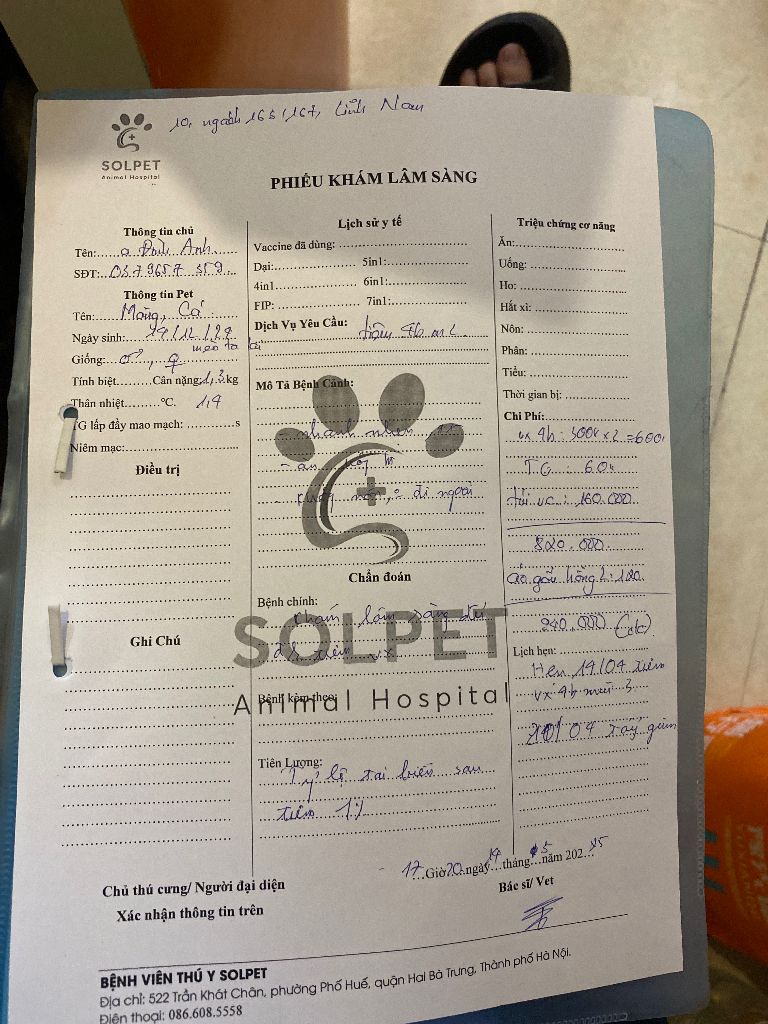 10, ngách 168/167, Lĩnh Nam
SOLPET
Animal Hospital
PHIẾU KHÁM LÂM SÀNG
Thông tin chủ
Tên: a Đức Anh
SĐT: 0379657 359
Thông tin Pet
Tên: Mướp, Cá
Ngày sinh: 29/12/24
mèo ta lai
Giống: ♂, ♀
Tính biệt.........Cân nặng: 1,3 kg
Thân nhiệt.........°C. 1,4
TG lấp đầy mao mạch: ............s
Niêm mạc:
Điều trị
Ghi Chú
Lịch sử y tế
Vaccine đã dùng:
Dại: 5in1:
4in1 6in1:
FIP: 7in1:
Dịch Vụ Yêu Cầu: tiêm 4b m2
Mô Tả Bệnh Cảnh:
- nhanh nhẹn
- ăn
- nôn, đi ngoài
Chẩn đoán
Bệnh chính: khám lâm sàng đủ
đk tiêm vx
SOLPET
Animal Hospital
Bệnh kèm theo:
Tiên Lượng: Tỷ lệ tai biến sau
tiêm 1%
Triệu chứng cơ năng
Ăn:
Uống:
Ho:
Hắt xì:
Nôn:
Phân:
Tiểu:
Thời gian bị:
Chi Phí:
vx 4b: 300k x 2 = 600k
T.G: 60k
túi vc: 160.000
820.000
áo gấu hồng 2: 120.
940.000 (ck)
Lịch hẹn:
Hẹn 19/04 tiêm
vx 4b mũi 3
20/04 tẩy giun
17 Giờ 20 ngày 19 tháng 5 năm 202
Chủ thú cưng/ Người đại diện
Xác nhận thông tin trên
Bác sĩ/ Vet
BỆNH VIỆN THÚ Y SOLPET
Địa chỉ: 522 Trần Khát Chân, phường Phố Huế, quận Hai Bà Trưng, Thành phố Hà Nội.
Điện thoại: 086.608.5558